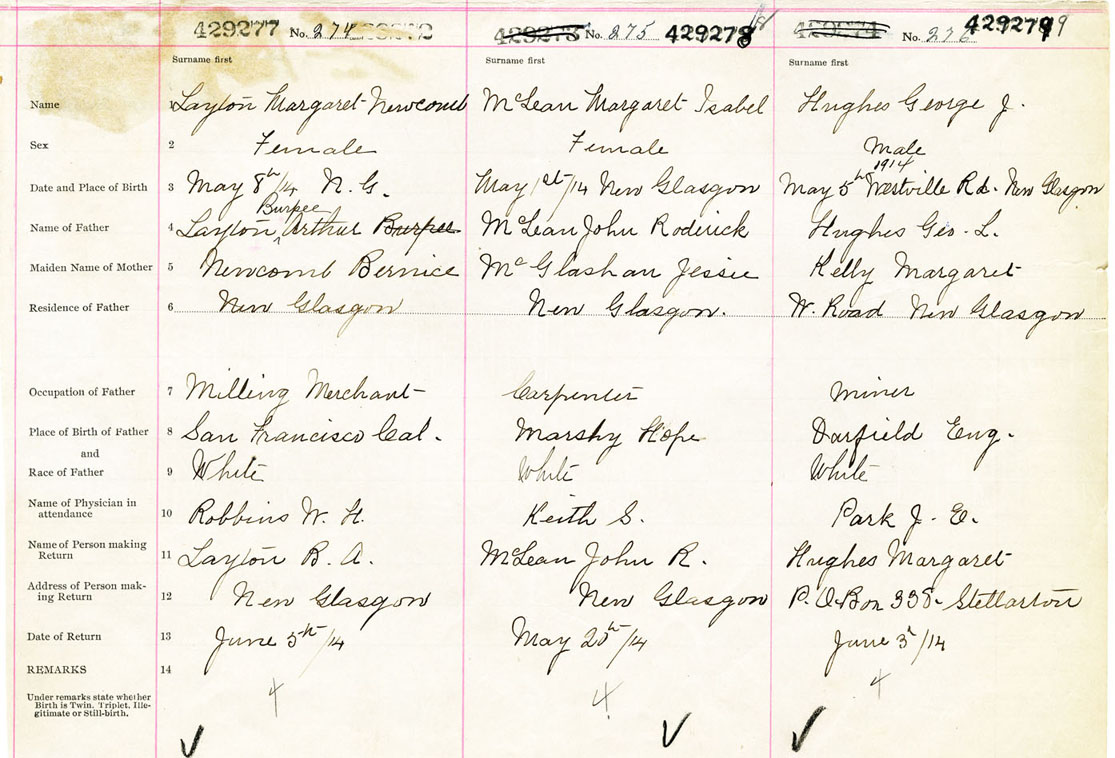 429277 No. 274 No. 275 429278 No. 276 429279
Surname first Surname first Surname first
Name 1 Layton Margaret Newcomb McLean Margaret Isabel Hughes George J.
Sex 2 Female Female Male
1914
Date and Place of Birth 3 May 8th/14 N. G. May 1st/14 New Glasgow May 5th Westville Rd. New Glasgow
Burpee
Name of Father 4 Layton, Arthur Burpee McLean John Roderick Hughes Geo. L.
Maiden Name of Mother 5 Newcomb Bernice McGlashan Jessie Kelly Margaret
Residence of Father 6 New Glasgow New Glasgow. W. Road New Glasgow
Occupation of Father 7 Milling Merchant Carpenter Miner
Place of Birth of Father 8 San Francisco Cal. Marshy Hope Darfield Eng.
and
Race of Father 9 White White White
Name of Physician in
attendance 10 Robbins W. H. Keith S. Park J. E.
Name of Person making
Return 11 Layton B. A. McLean John R. Hughes Margaret
Address of Person mak-
ing Return 12 New Glasgow New Glasgow P. O. Box 338 Stellarton
Date of Return 13 June 5th/14 May 20th/14 June 3/14
REMARKS 14
Under remarks state whether
Birth is Twin. Triplet. Ille-
gitimate or Still-birth.
4 4 4